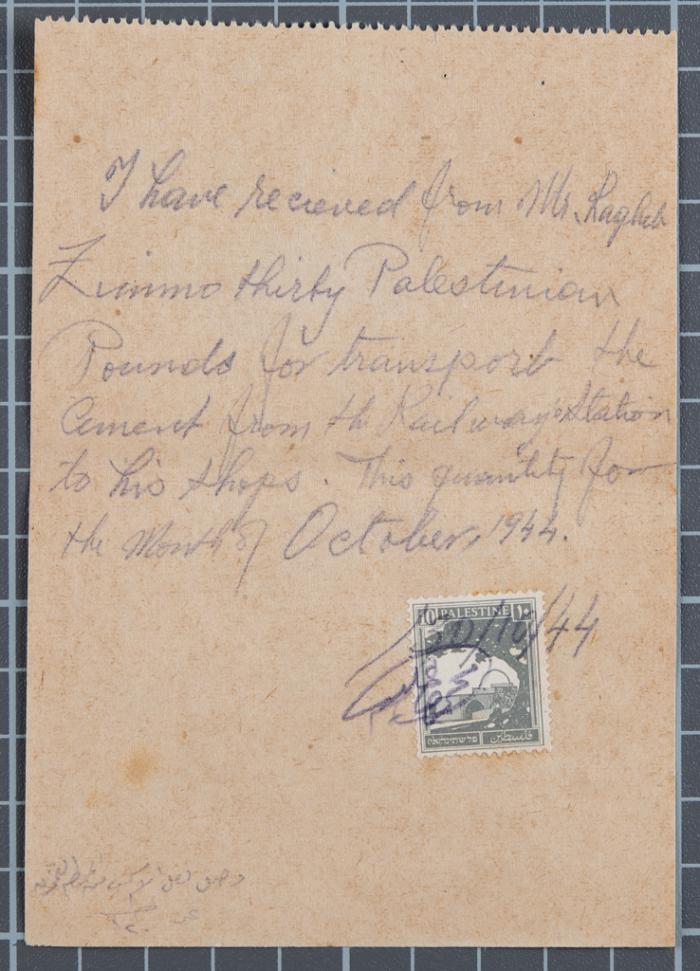 I have recieved from Mr. Ragheb
Zimmo thirty Palestinian
Pounds for transport the
Cement from th Railway Station
to his shops. This quantity for
the Month of October, 1944.
30/10/44
10 PALESTINE ١٠
פלשתינה א״י فلسطين